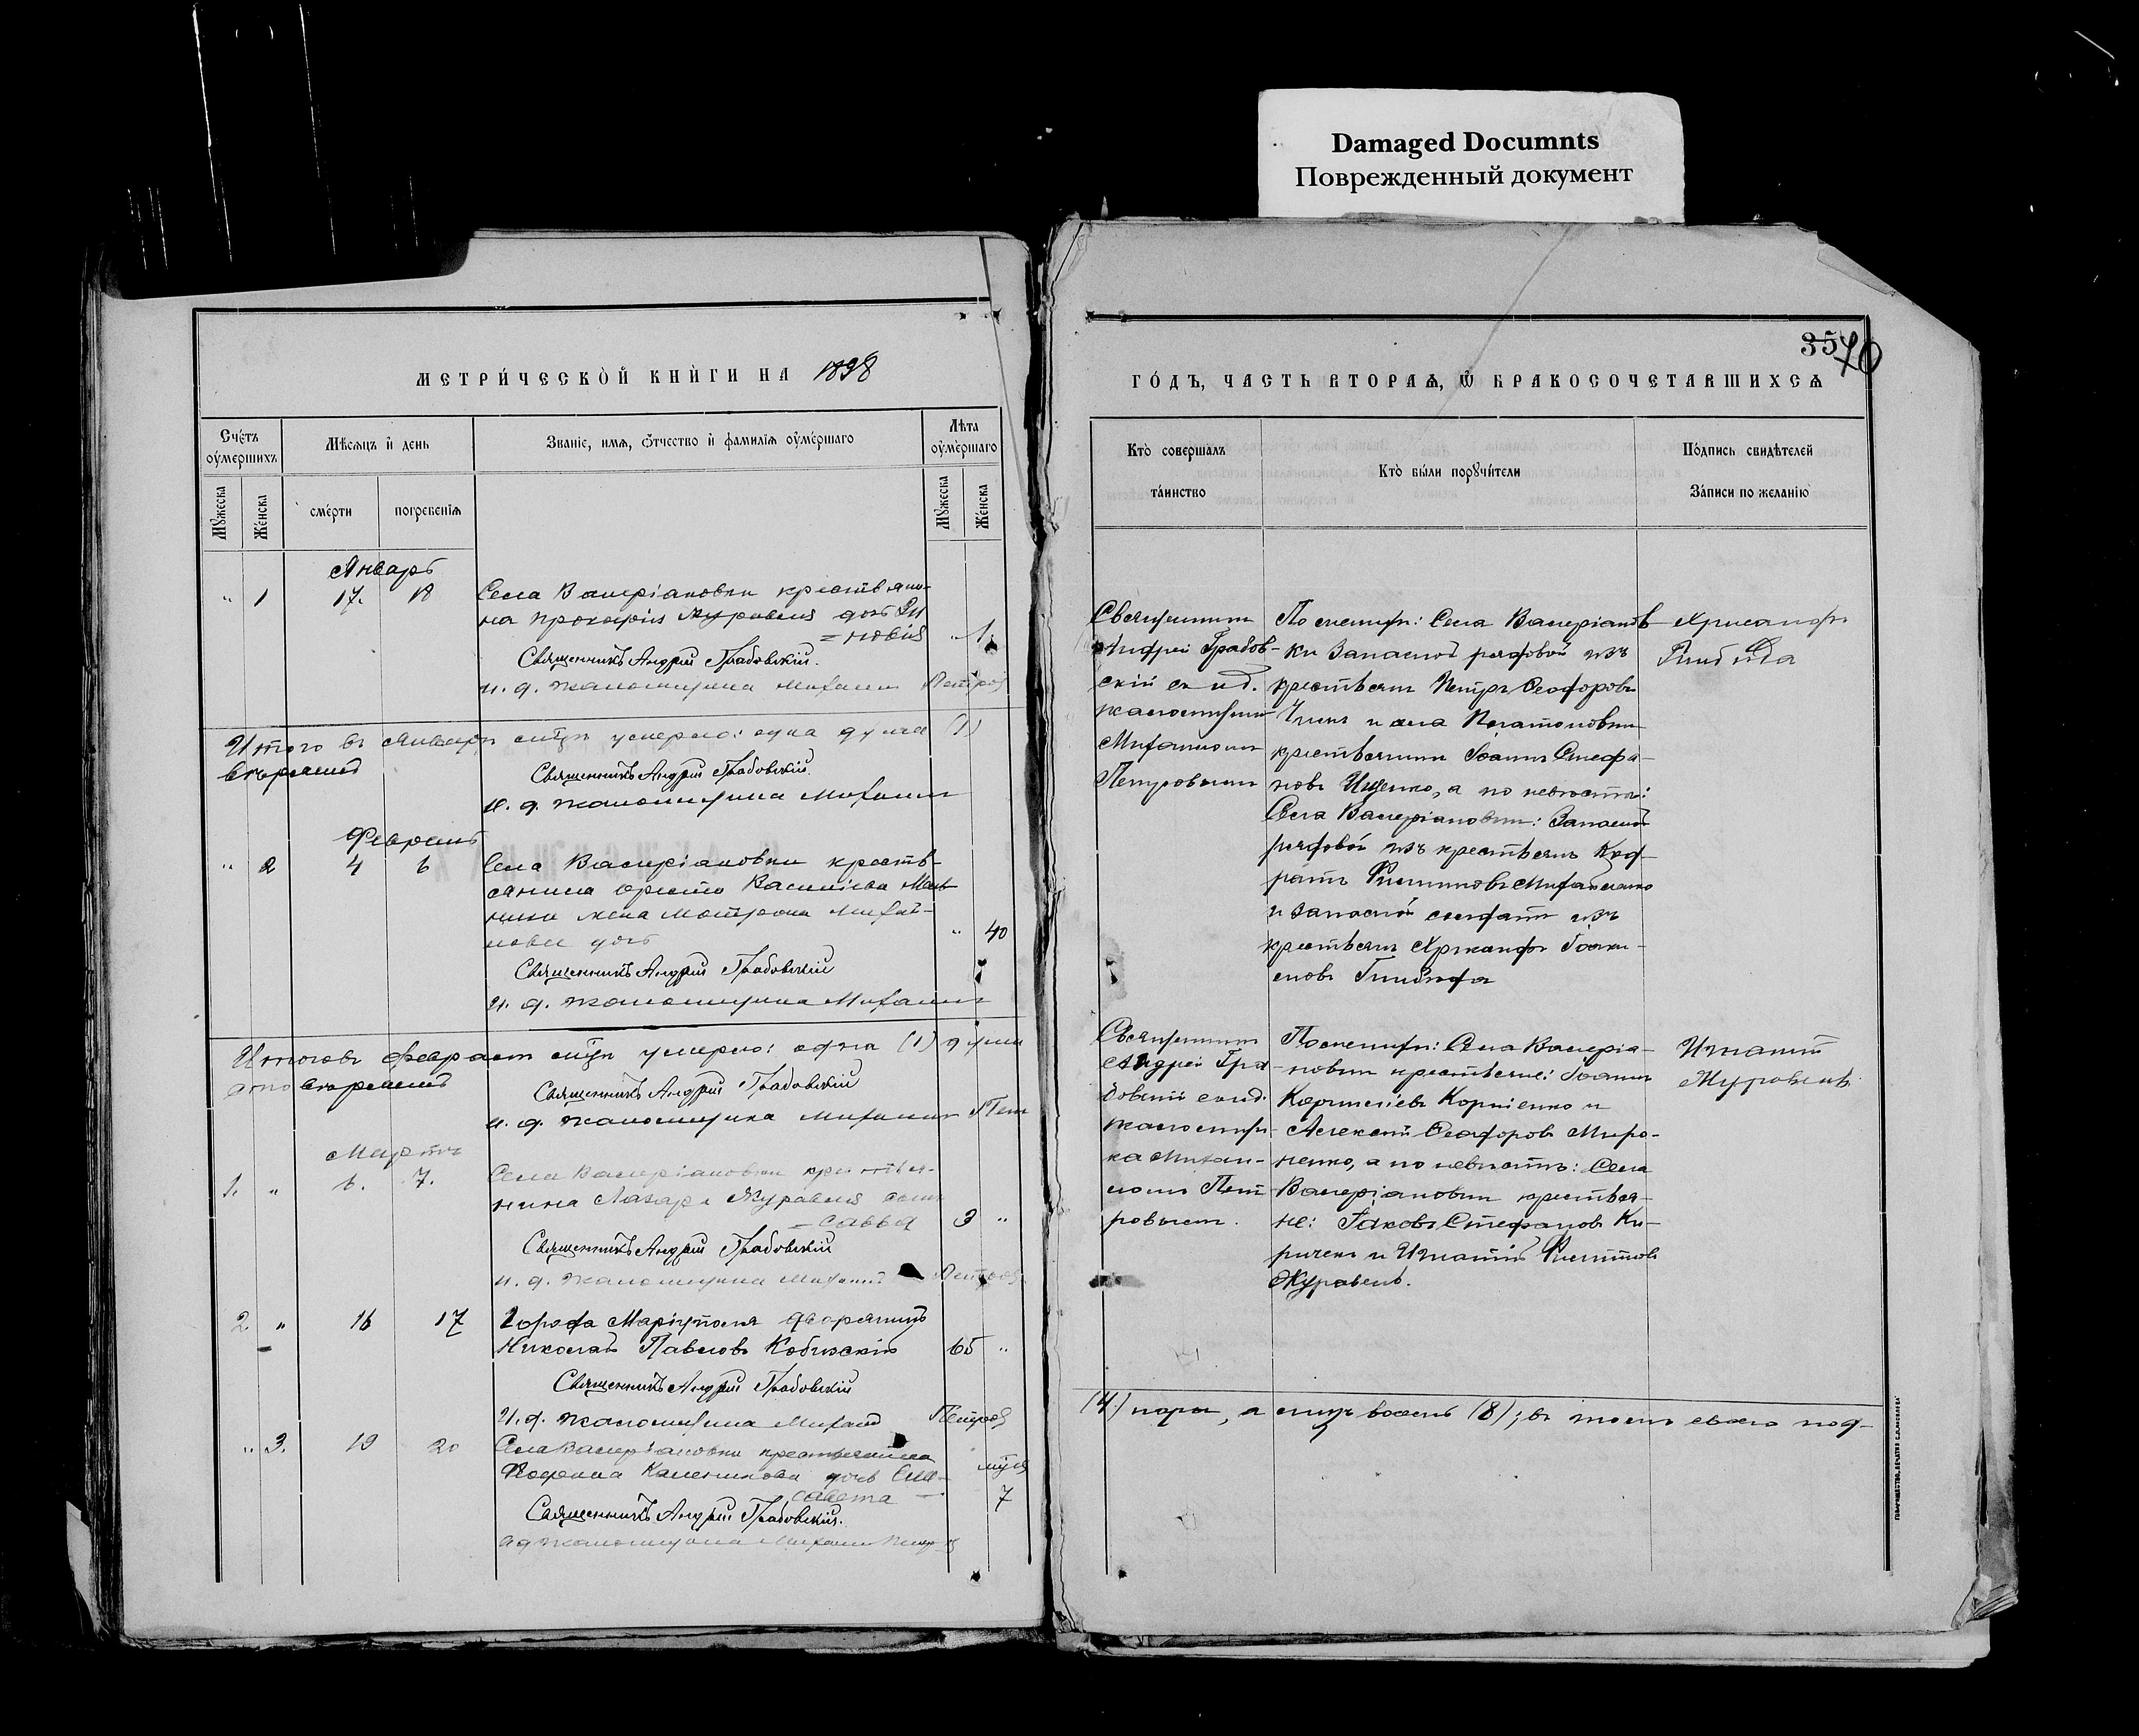 Damaged Documnts
Поврежденный документ
МЕТРИ́ЧЕСКОЙ КНИ́ГИ НА 1898
Сче́тъ ᲂу҆ме́ршихъ
Мѣсѧцъ и҆ день
Званіе, имѧ, ѻ҆тчество и҆ фамиліѧ ᲂу҆ме́ршаго
Лѣта ᲂу҆ме́ршаго
Мꙋжеска
Же́нска
сме́рти
погребенїѧ
Мꙋжеска
Же́нска
Январь
" 1 17. 18 Села Валеріановки крестьяни-
на Прокофія Журавля дочь Зи
=новія " 1.
Священникъ Андрей Грабовскій.
и. д. псаломщика Михаилъ Петровъ
Итого въ Январѣ мцѣ умерло: одна душа (1)
Священникъ Андрей Грабовскій.
И. д. псаломщика Михаилъ
Февраль
" 2 4 6 Села Валеріановки кресть-
янина Васильева
жена Матрона Михай-
лова дочь " 40
Священникъ Андрей Грабовскій
И. д. псаломщика Михаилъ
Итого въ Февралѣ мцѣ умерло: одна (1) душа
Священникъ Андрей Грабовскій
и. д. псаломщика Михаилъ Пет
Мартъ
1. " 6. 7. Села Валеріановки крестья-
нина Лазаря Журавля сынъ
=Савва 3 "
Священникъ Андрей Грабовскій
и. д. псаломщика Михаилъ Петровъ
2 " 16 17 Города Маріуполя дворянинъ
Николай Павловъ 65 "
Священникъ Андрей Грабовскій
И. д. псаломщика Михаилъ Петровъ
" 3. 19 20 Села Валеріановки крестьянина
дочь Ели-
савета 7
Священникъ Андрей Грабовскій.
ид псаломщика Михаилъ
35 70
ГО́ДЪ, ЧАСТЬ ВТОРАѦ, Ѽ БРАКОСОЧЕТАВШИХСѦ
Кто̀ соверша́лъ та́инство
Кто̀ бы́ли порꙋчи́тели
По́дпись свидѣ́телей За́писи по желанїю
Священникъ
Андрей Грабов-
скій съ и.д.
псаломщика
Михаиломъ
Петровымъ
По женихѣ: Села Валеріанов
ки запасной рядовой изъ
крестьянъ Петръ Ѳеодоровъ
и села Платоновки
крестьянинъ Іоаннъ Стефа-
новъ Ищенко, а по невѣстѣ:
Села Валеріановки: Запасной
рядовой изъ крестьянъ Код-
ратъ Филипповъ Михайленко
и запасной солдатъ изъ
крестьянъ Хрисанфъ Іоаки-
мовъ
Хрисанфъ
Священникъ
Андрей Гра
бовскій съ и.д.
псаломщи-
ка Михаи-
ломъ Пет
ровымъ.
По женихѣ: Села Валеріа-
новки крестьяне: Іоаннъ
Корниліевъ Корніенко и
Алексѣй Ѳеодоровъ Миро-
ненко, а по невѣстѣ: Села
Валеріановки крестья-
не: Іаковъ Стефановъ Ки-
риченко и Игнатій Филипповъ
Журавель.
Игнатій
Журавель
(4) пары, а лицъ восемь (8); въ томъ своею под-